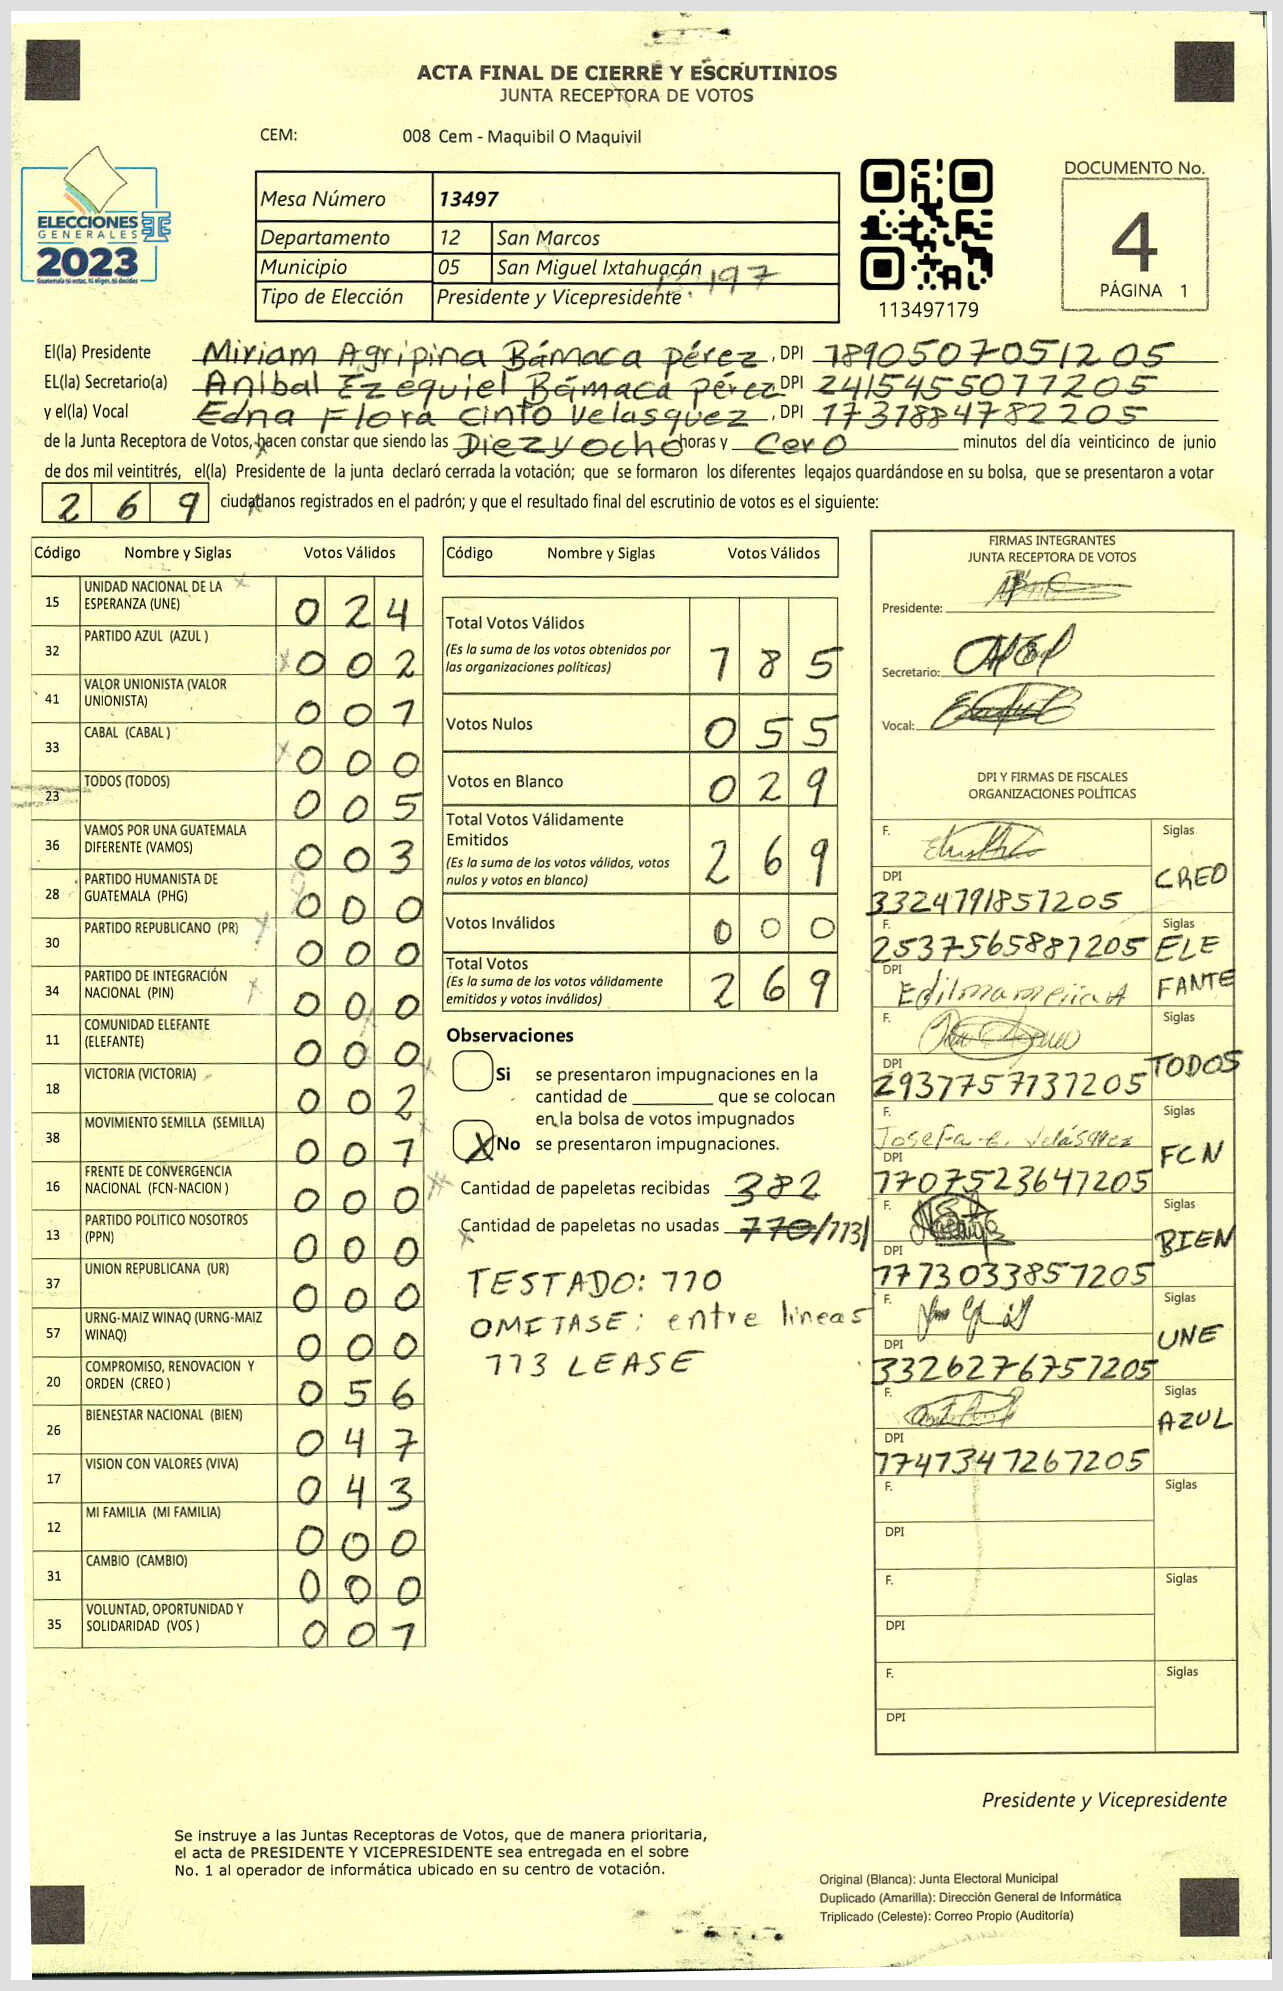 ACTA FINAL DE CIERRE Y ESCRUTINIOS
JUNTA RECEPTORA DE VOTOS
CEM: 008 Cem - Maquibil O Maquivil
ELECCIONES
GENERALES
2023
Guatemala tú estas, tú eliges, tú decides
Mesa Número 13497
Departamento 12 San Marcos
Municipio 05 San Miguel Ixtahuacán
Tipo de Elección Presidente y Vicepresidente
113497179
DOCUMENTO No.
4
PÁGINA 1
El(la) Presidente Miriam Agripina Bámaca Pérez, DPI 1890507051205
EL(la) Secretario(a) Anibal Ezequiel Bámaca Pérez DPI 2415455071205
y el(la) Vocal Edna Flora Cinto Velasquez, DPI
de la Junta Receptora de Votos, hacen constar que siendo las Diez y ocho horas y Cero minutos del día veinticinco de junio
de dos mil veintitrés, el(la) Presidente de la junta declaró cerrada la votación; que se formaron los diferentes legajos guardándose en su bolsa, que se presentaron a votar
269 ciudadanos registrados en el padrón; y que el resultado final del escrutinio de votos es el siguiente:
Código Nombre y Siglas Votos Válidos
15 UNIDAD NACIONAL DE LA
ESPERANZA (UNE) 024
32 PARTIDO AZUL (AZUL ) 002
41 VALOR UNIONISTA (VALOR
UNIONISTA) 001
33 CABAL (CABAL ) 000
23 TODOS (TODOS) 005
36 VAMOS POR UNA GUATEMALA
DIFERENTE (VAMOS) 003
28 PARTIDO HUMANISTA DE
GUATEMALA (PHG) 000
30 PARTIDO REPUBLICANO (PR) 000
34 PARTIDO DE INTEGRACIÓN
NACIONAL (PIN) 000
11 COMUNIDAD ELEFANTE
(ELEFANTE) 000
18 VICTORIA (VICTORIA) 002
38 MOVIMIENTO SEMILLA (SEMILLA) 001
16 FRENTE DE CONVERGENCIA
NACIONAL (FCN-NACION ) 000
13 PARTIDO POLITICO NOSOTROS
(PPN) 000
37 UNION REPUBLICANA (UR) 000
57 URNG-MAIZ WINAQ (URNG-MAIZ
WINAQ) 000
20 COMPROMISO, RENOVACION Y
ORDEN (CREO ) 056
26 BIENESTAR NACIONAL (BIEN) 047
17 VISION CON VALORES (VIVA) 043
12 MI FAMILIA (MI FAMILIA) 000
31 CAMBIO (CAMBIO) 000
35 VOLUNTAD, OPORTUNIDAD Y
SOLIDARIDAD (VOS ) 001
Código Nombre y Siglas Votos Válidos
Total Votos Válidos
(Es la suma de los votos obtenidos por
las organizaciones políticas) 185
Votos Nulos 055
Votos en Blanco 029
Total Votos Válidamente
Emitidos
(Es la suma de los votos válidos, votos
nulos y votos en blanco) 269
Votos Inválidos 000
Total Votos
(Es la suma de los votos válidamente
emitidos y votos inválidos) 269
Observaciones
Si se presentaron impugnaciones en la
cantidad de ________ que se colocan
en la bolsa de votos impugnados
X No se presentaron impugnaciones.
Cantidad de papeletas recibidas 382
Cantidad de papeletas no usadas 110/113/
TESTADO: 110
OMITASE: entre lineas
113 LEASE
FIRMAS INTEGRANTES
JUNTA RECEPTORA DE VOTOS
Presidente:
Secretario:
Vocal:
DPI Y FIRMAS DE FISCALES
ORGANIZACIONES POLÍTICAS
F. Siglas
CREO
DPI
3324191851205
F. Siglas
2537565881205 ELE
FANTE
DPI
F. Siglas
TODOS
DPI
2937757131205
F. Siglas
Josefa e. Velásquez
FCN
DPI
1707523641205
F. Siglas
BIEN
DPI
1773033851205
F. Siglas
UNE
DPI
3326276751205
F. Siglas
AZUL
DPI
1747347261205
F. Siglas
DPI
F. Siglas
DPI
F. Siglas
DPI
Presidente y Vicepresidente
Se instruye a las Juntas Receptoras de Votos, que de manera prioritaria,
el acta de PRESIDENTE Y VICEPRESIDENTE sea entregada en el sobre
No. 1 al operador de informática ubicado en su centro de votación.
Original (Blanca): Junta Electoral Municipal
Duplicado (Amarilla): Dirección General de Informática
Triplicado (Celeste): Correo Propio (Auditoría)